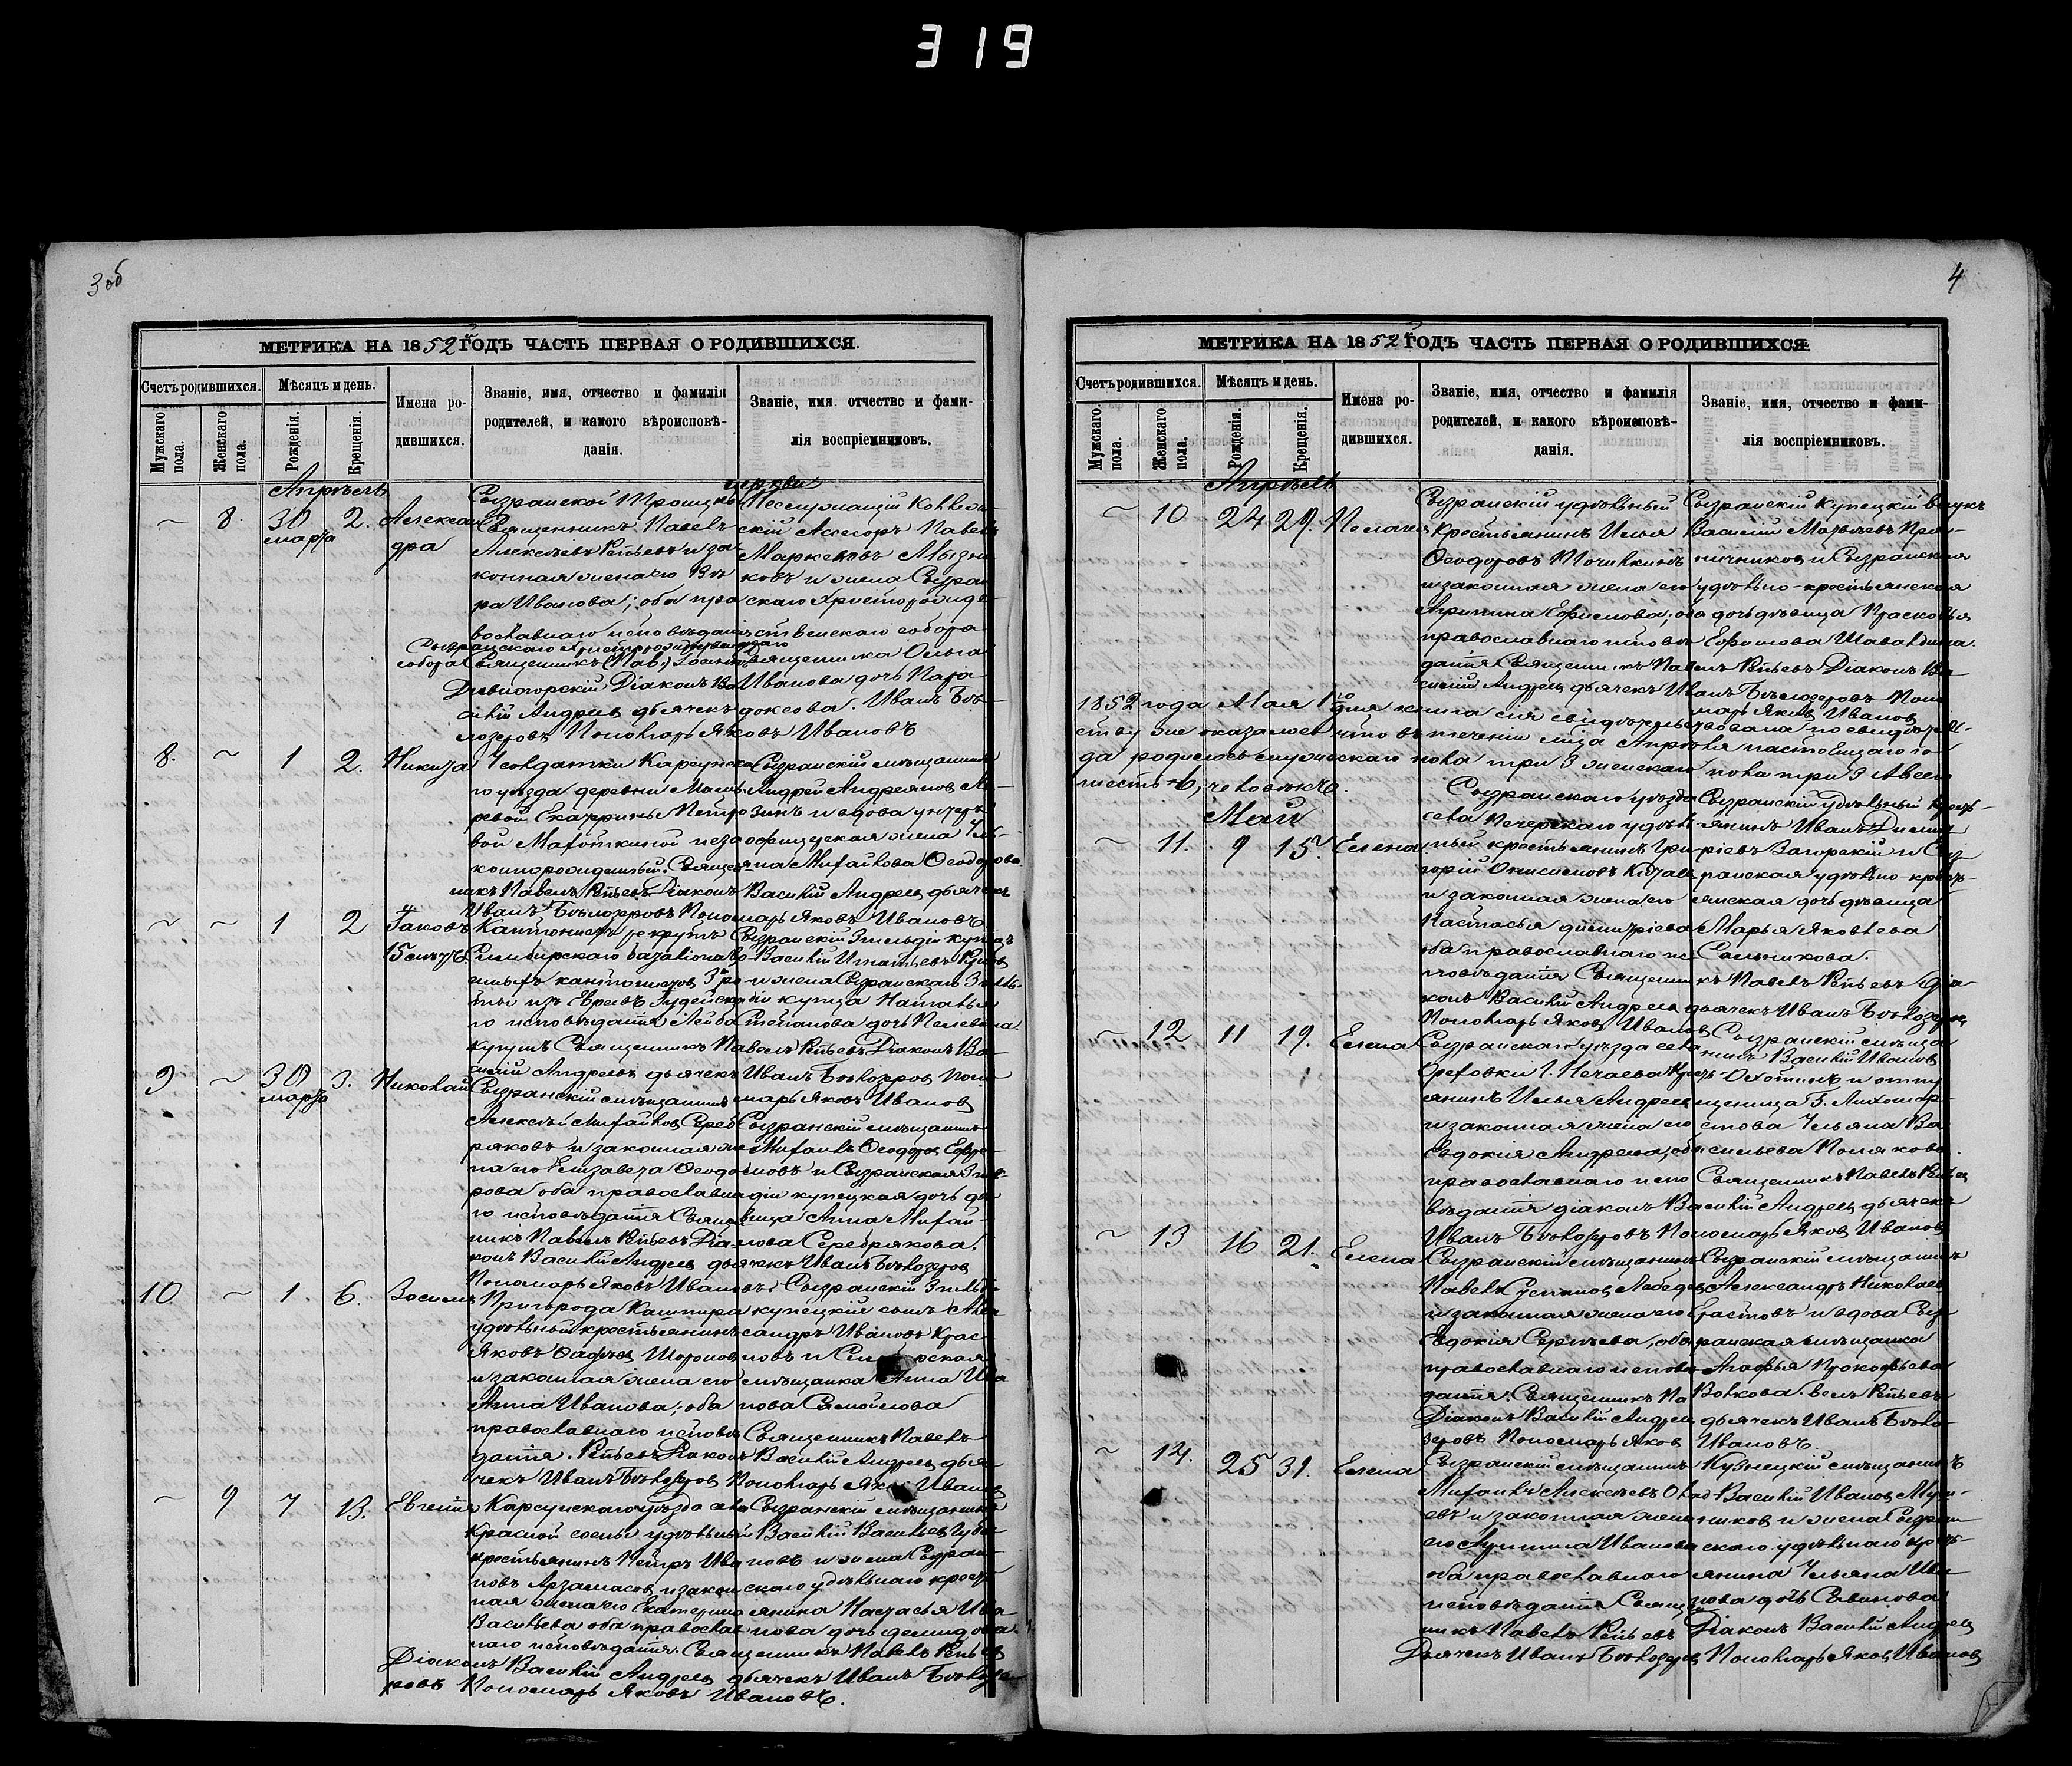 319
3 об
МЕТРИКА НА 1852й ГОДЪ ЧАСТЬ ПЕРВАЯ О РОДИВШИХСЯ.
Счетъ родившихся.
Мѣсяцъ и день.
Имена ро-
дившихся.
Званіе, имя, отчество и фамилія
родителей, и какого вѣроисповѣ-
данія.
Званіе, имя отчество и фами-
лія воспріемниковъ.
Мужскаго
пола.
Женскаго
пола.
Рожденія.
Крещенія.
Апрѣль
~ 8. 30 марта 2. Александра
Сызранской Троицкой церкви
Священникъ Павелъ
Алексѣевъ Репьевъ и за-
конная жена его
ра Иванова; оба пра
вославнаго исповѣданія
Сызранскаго Христорождественскаго
собора Священникъ
Дивногорскій Діаконъ Ва
силій Андреев дьячекъ
лозеровъ Пономарь Яковъ Ивановъ
скій Асесоръ Павелъ
Маркеловъ Мызни
ковъ и жена Сызран
скаго Христорожде
ственскаго собора
священника Ольга
Иванова дочь Пара
доксова. Иванъ Бѣ
8. ~ 1 2. Никита
У солдатки Карсунска
го уѣзда деревни
ревой Екатерины Петро
вой Махоткиной неза
коннорожденный. Священ
никъ Павелъ Репьевъ Діаконъ Василій Андреев дьячекъ
Иванъ Бѣлозеровъ Пономарь Яковъ Ивановъ
Сызранскій мѣщанинъ
Андрей Андреянов
зинъ и вдова унтеръ
офицерская жена
на Михайлова Ѳеодорова.
~ ~ 1 2 Іаковъ
15 лѣтъ
Кантонистъ рекрутъ
Симбирскаго баталіона во
енныхъ кантонистов 3й ро
ты изъ Евреевъ Іудейска
го исповѣданія Лейба
Купуш Священникъ Павелъ Репьевъ Діаконъ Ва
силій Андреевъ дьячекъ Иванъ Бѣлозеров Поно
марь Яковъ Иванов
Сызранскій 3 гильдіи купецъ
Василій Игнатьевъ
и жена Сызранскаго 3 гиль
діи купца Наталья
Степанова дочь Пелевина
9 ~ 30 марта 3. Николай
Сызранскій мѣщанинъ
Алексѣй Михайлов Сереб
ряковъ и законная же
на его Елизавета Ѳеодо
рова оба православна
го исповѣданія Священ
никъ Павелъ Репьевъ Діа
конъ Василій Андреев дьячекъ Иванъ Бѣлозеров
Пономарь Яковъ Ивановъ.
Сызранскій мѣщанинъ
Михаилъ Ѳеодоров Ефре
мовъ и Сызранская 3 гиль
діи купецкая дочь дѣ
вица Анна Михай
лова Серебрякова.
10. ~ 1. 6. Василій
Пригорода Кашпира
удѣльный крестьянинъ
Яковъ Шоронов
и законная жена его
Анна Иванова; оба
православнаго исповѣ
данія. Репьевъ Діаконъ Василій Андреев дья
чекъ Иванъ Бѣлозеров Пономарь Яковъ Иванов
Сызранскій 3 гильдіи
купецкій сынъ Алек
сандръ Ивановъ Крас
новъ и
мѣщанка Анна Ива
нова Самойлова
Священникъ Павелъ
~ 9 7 13. Евгенія
Карсунскаго уѣзда
Красной сосны удѣльный
крестьянинъ Петръ Ива
новъ Арзамасов и закон
ная жена его Екатерина
Васильева оба православ
наго исповѣданія. Священникъ Павелъ Репьев
Діаконъ Василій Андреев дьячекъ Иванъ Бѣлозе
ровъ Пономарь Яковъ Ивановъ.
Сызранскій мѣщанинъ
Василій Васильев Губа
новъ и жена Сызран
скаго удѣльнаго кресть
янина Настасья Ива
нова дочь
4
МЕТРИКА НА 1852й ГОДЪ ЧАСТЬ ПЕРВАЯ О РОДИВШИХСЯ.
Счетъ родившихся.
Мѣсяцъ и день.
Имена ро-
дившихся.
Званіе, имя, отчество и фамилія
родителей, и какого вѣроисповѣ-
данія.
Званіе, имя, отчество и фами-
лія воспріемниковъ.
Мужскаго
пола.
Женскаго
пола.
Рожденія.
Крещенія.
Апрѣль
~ 10 24 29. Пелагея
Сызранскій удѣльный
крестьянинъ Илья
Ѳеодоровъ Точилкинъ
и законная жена его
Агрипина Ефимова, оба
православнаго исповѣ
данія Священникъ Павелъ Репьевъ Діаконъ Ва
силій Андреев дьячекъ Иванъ Бѣлозеровъ Поно
марь Яковъ Иванов
Сызранскій купецкій внукъ
Василій Матвѣевъ Пря-
ничников и Сызранская
удѣльно-крестьянская
дочь дѣвица Прасковья
Ефимова Шавалдина.
1852 года Мая 1го дня книга сія свидѣтельствована по свидѣтель-
ству же оказалось что въ теченіи м-ца Апрѣля настоящаго го
да родилось мужескаго пола три 3 женскаго пола три 3 А всего
шесть 6, человѣкъ.
Май
~ 11. 9 15. Елена
Сызранскаго уѣзда
села Печерскаго удѣль
ный крестьянинъ Гри
горій Онисимовъ
и законная жена его
Настасья Димитріева
оба православнаго ис
повѣданія Священникъ Павелъ Репьевъ Діа-
конъ Василій Андреев дьячекъ Иванъ Бѣлозеров
Пономарь Яковъ Иванов
Сызранскій удѣльный кресть-
янинъ Иванъ Димит
ріевъ Загорскій и Сыз
ранская удѣльно-кресть-
янская дочь дѣвица
Марья Яковлева
Сальникова.
~ 12 11 19. Елена
Сызранскаго уѣзда села
Ореховки Г. Нечаева кресть
янинъ Илья Андреев
и законная жена его
Евдокия Андреева, оба
православнаго испо
вѣданія діаконъ Василій Андреев дьячекъ
Иванъ Бѣлозеровъ Пономарь Яковъ Иванов
Сызранскій мѣща
нинъ Василій Иванов
Охотинъ и отпу
щеница Г.
Ульяна Ва
сильева Полякова.
Священникъ Павелъ Репьев
~ 13 16 21. Елена
Сызранскій мѣщанинъ
Павелъ Лебедев
и законная жена его
Евдокия Сергѣева, оба
православнаго исповѣ
данія. Священникъ Па велъ Репьевъ
Діаконъ Василій Андреев дьячекъ Иванъ Бѣло
зеровъ Пономарь Яков Ивановъ.
Сызранскій мѣщанинъ
Александръ Николаев
Ерастовъ и вдова Сыз
ранская мѣщанка
Агафья Прокофьева
Волкова.
~ 14. 25 31. Елена
Сызранскій мѣщанинъ
Михаилъ Алексѣевъ
евъ и законная жена
его Иванова
оба православнаго
исповѣданія Священ
никъ Павелъ Репьевъ Діаконъ Василій Андреев
Дьячекъ Иванъ Бѣлозеров Пономарь Яков Иванов
Кузнецкій мѣщанинъ
Василій Иванов
ников и жена Сызран
скаго удѣльнаго кресть-
янина Ульяна Ива
нова дочь Савинова